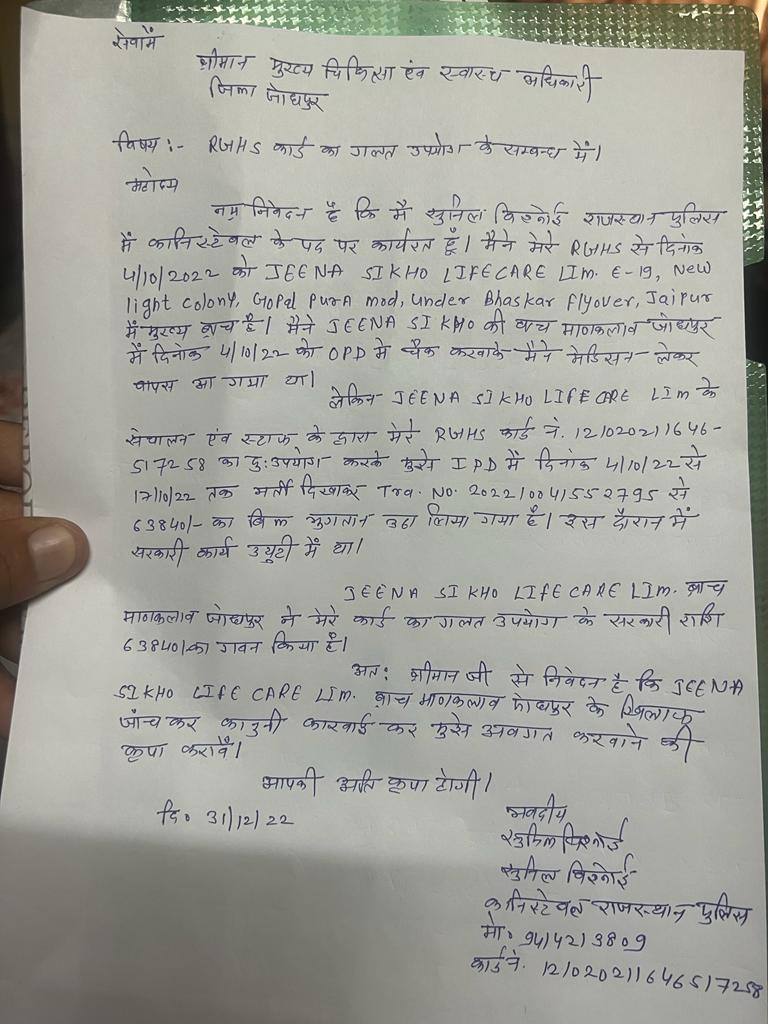 सेवामें
श्रीमान मुख्य चिकित्सा एंव स्वास्थ अधिकारी
जिला जोधपुर
विषय :- RGHS कार्ड का गलत उपयोग के सम्बन्ध में।
महोदय
नम्र निवेदन है कि मैं सुनिल विश्नोई राजस्थान पुलिस
में कानिस्टेबल के पद पर कार्यरत हूँ। मैने मेरे RGHS से दिनांक
4/10/2022 को JEENA SIKHO LIFECARE LIM. E-19, New
light colony, Gopal pura mod, under Bhaskar flyover, Jaipur
में मुख्य ब्रांच है। मैंने JEENA SIKHO की ब्रांच माणकलाव जोधपुर
में दिनांक 4/10/22 को OPD में चैक करवाके मैंने मेडिसन लेकर
वापस आ गया था।
लेकिन JEENA SIKHO LIFECARE LIM के
संचालन एंव स्टाफ के द्वारा मेरे RGHS कार्ड नं. 121020211646-
517258 का दु:उपयोग करके मुझे IPD में दिनांक 4/10/22 से
17/10/22 तक भर्ती दिखाकर Tra. No. 202210041552795 से
63840/- का बिल भुगतान उठा लिया गया है। इस दौरान में
सरकारी कार्य ड्युटी में था।
JEENA SIKHO LIFECARE LIM. ब्रांच
माणकलाव जोधपुर ने मेरे कार्ड का गलत उपयोग के सरकारी राशि
63840/ का गबन किया है।
अत: श्रीमान जी से निवेदन है कि JEENA
SIKHO LIFE CARE LIM. ब्रांच माणकलाव जोधपुर के खिलाफ
जाँच कर कानुनी कारवाई कर मुझे अवगत करवाने की
कृपा करावें।
आपकी अति कृपा होगी।
दि० 31/12/22
भवदीय
सुनिल विश्नोई
सुनिल विश्नोई
कानिस्टेबल राजस्थान पुलिस
मो. 9414213809
कार्ड नं. 121020211646517258